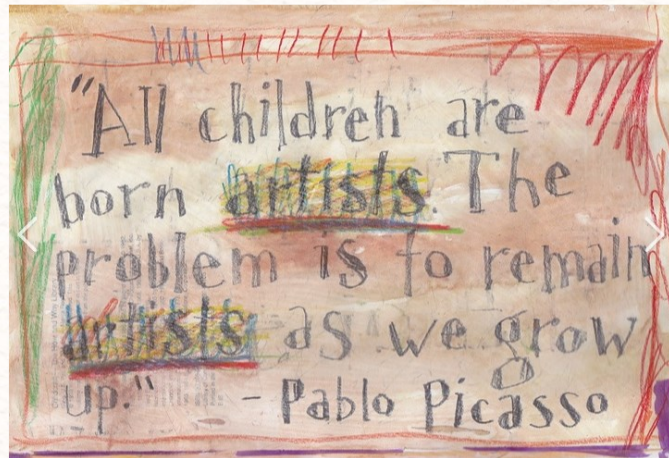 "All children are
born artists. The
problem is to remain
artists as we grow
up." - Pablo Picasso